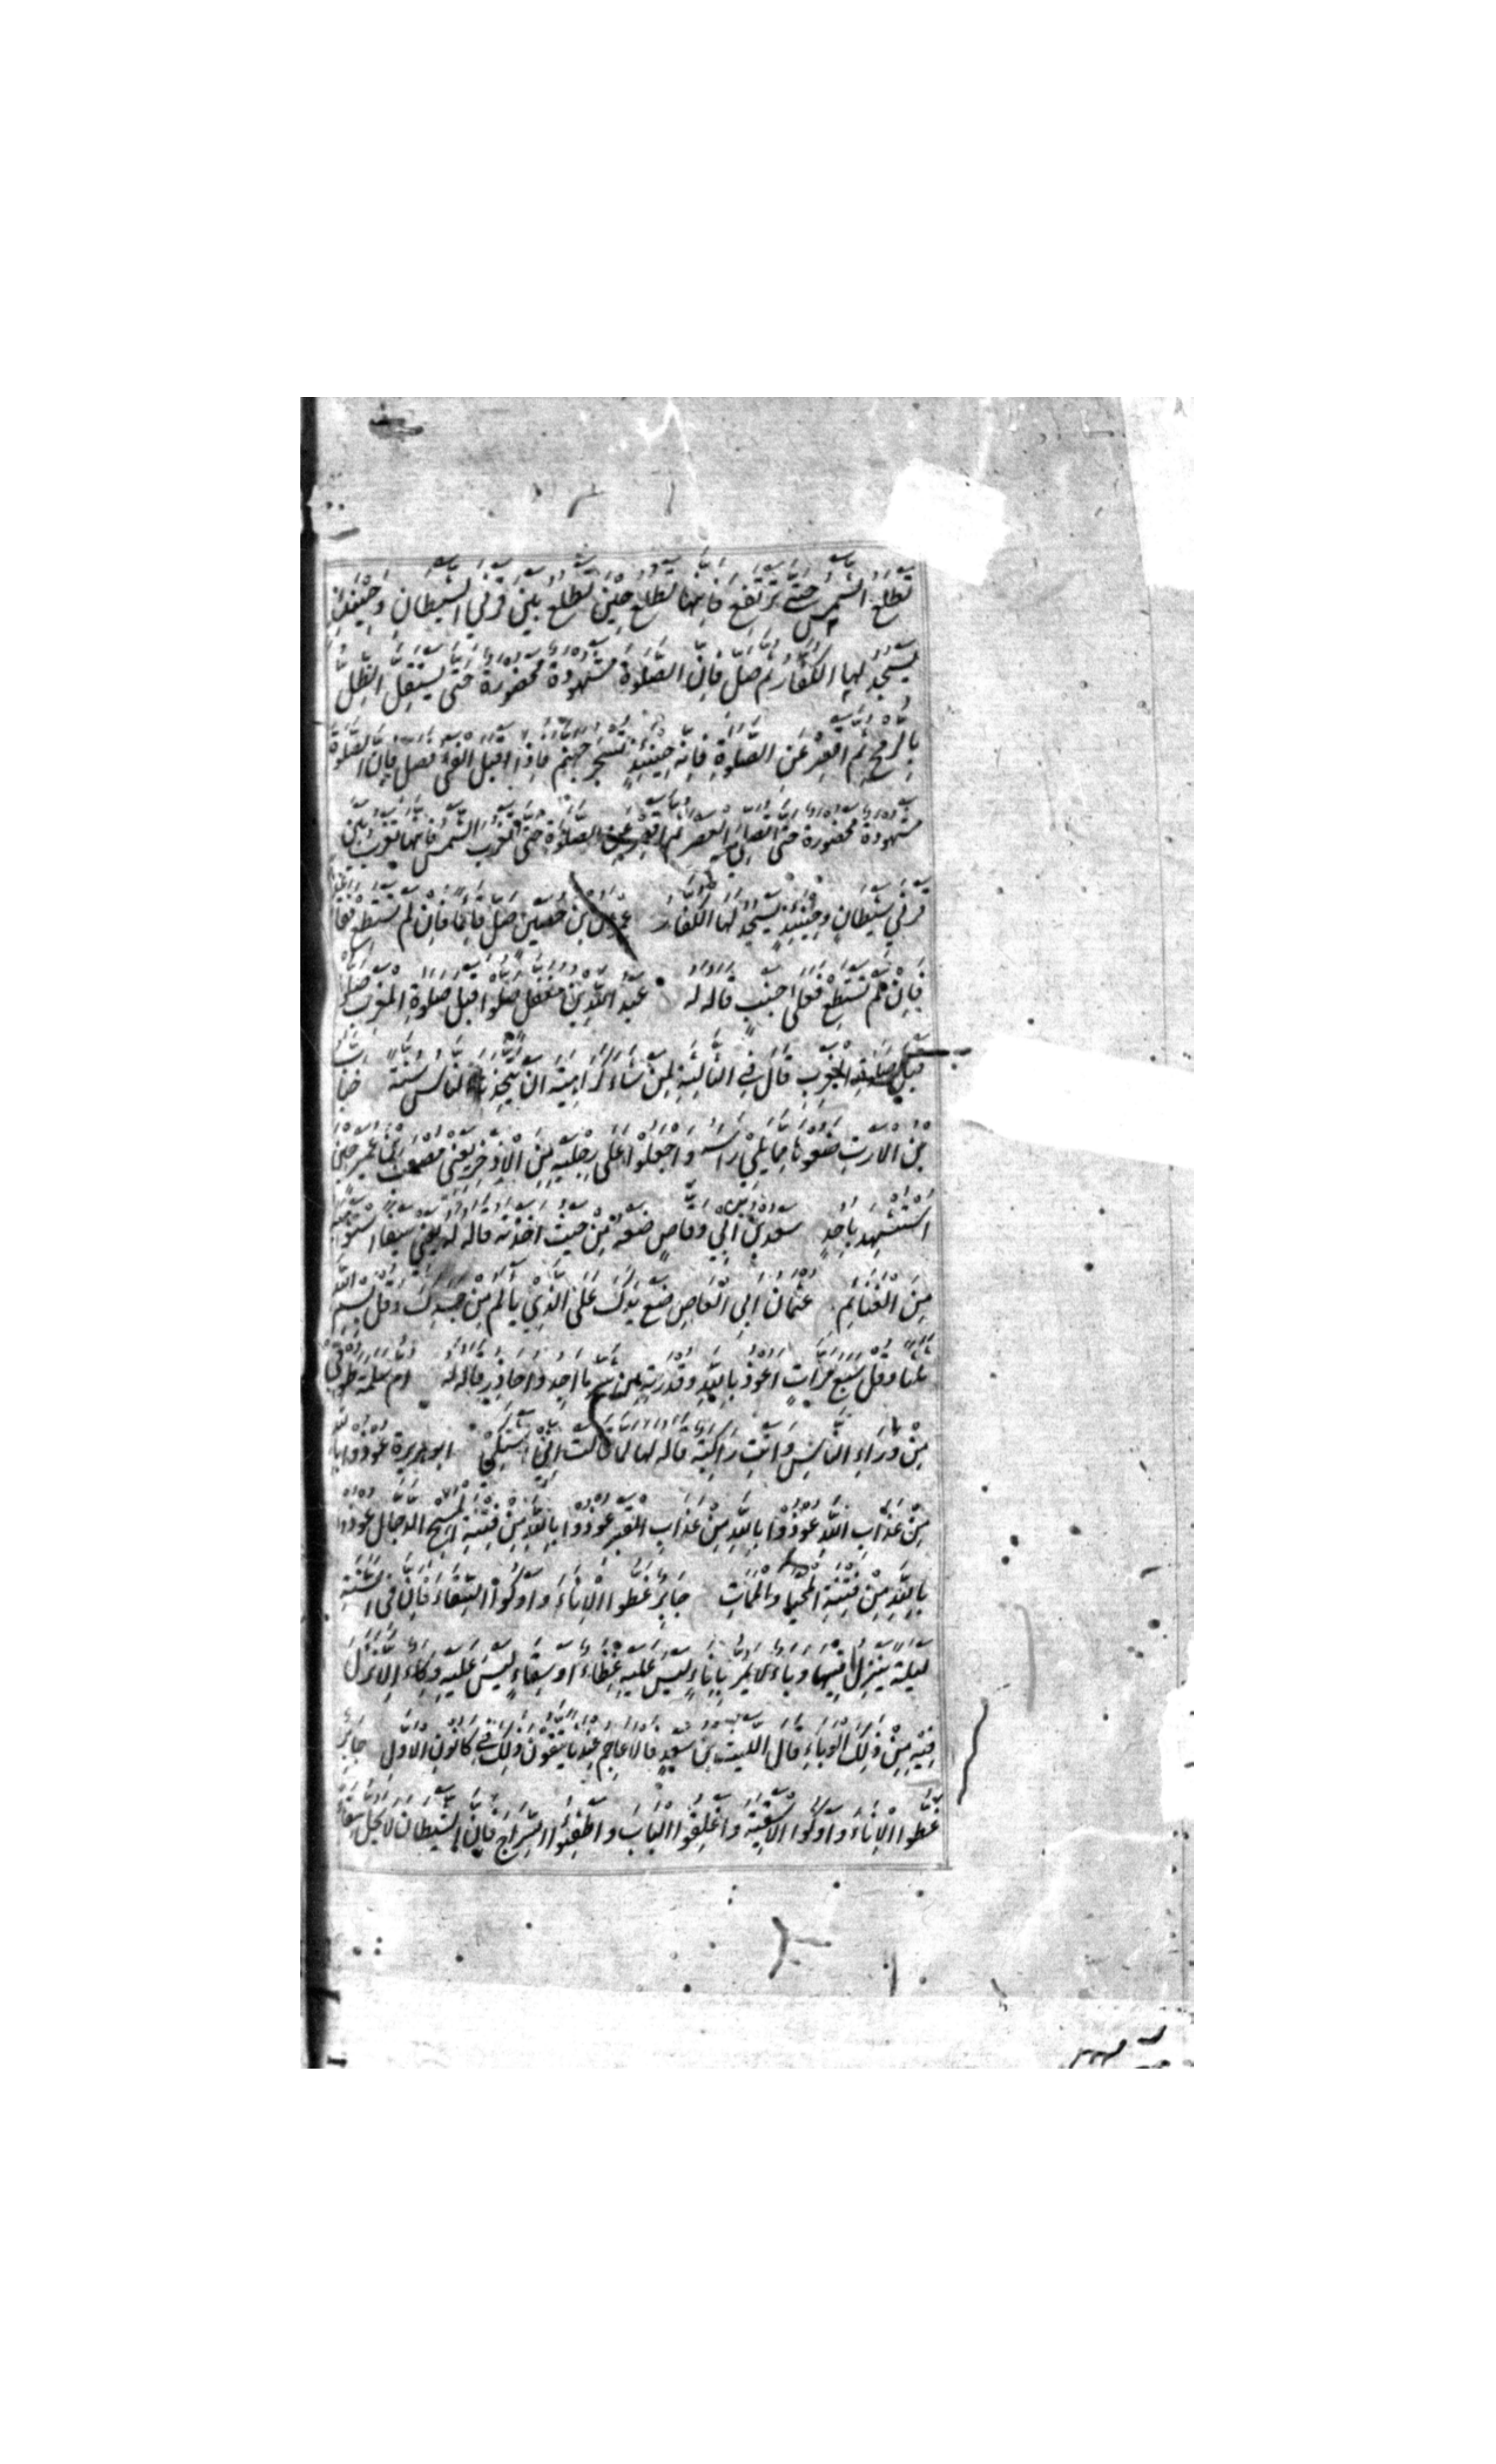 تَطْلُعَ الشَّمْسُ حَتّٰى تَرْتَفِعَ فَاِنَّهَا تَطْلُعُ حِيْنَ تَطْلُعُ بَيْنَ قَرْنَيِ الشَّيْطَانِ وَحِيْنَئِذٍ
يَسْجُدُ لَهَا الْكُفَّارُ ثُمَّ صَلِّ فَاِنَّ الصَّلٰوةَ مَشْهُوْدَةٌ مَحْضُوْرَةٌ حَتّٰى يَسْتَقِلَّ الظِّلُّ
بِالرُّمْحِ ثُمَّ اَقْصِرْ عَنِ الصَّلٰوةِ فَاِنَّهٗ حِيْنَئِذٍ تُسْجَرُ جَهَنَّمُ فَاِذَا اَقْبَلَ الْفَيْءُ فَصَلِّ فَاِنَّ الصَّلٰوةَ
مَشْهُوْدَةٌ مَحْضُوْرَةٌ حَتّٰى تُصَلِّيَ الْعَصْرَ ثُمَّ اَقْصِرْ عَنِ الصَّلٰوةِ حَتّٰى تَغْرُبَ الشَّمْسُ فَاِنَّهَا تَغْرُبُ بَيْنَ
قَرْنَيْ شَيْطَانٍ وَحِيْنَئِذٍ يَسْجُدُ لَهَا الْكُفَّارُ عمران بن حصين صَلِّ قَائِمًا فَاِنْ لَمْ تَسْتَطِعْ
فَاِنْ لَمْ تَسْتَطِعْ فَعَلٰى جَنْبٍ قاله له عبد الله بن مغفل صَلُّوْا قَبْلَ صَلٰوةِ الْمَغْرِبِ صَلُّوْا
قَبْلَ صَلٰوةِ الْمَغْرِبِ قَالَ فِي الثَّالِثَةِ لِمَنْ شَاءَ كَرَاهِيَةَ اَنْ يَتَّخِذَهَا النَّاسُ سُنَّةً
بْنُ الْاَرَتِّ ضَعُوْهَا مِمَّا يَلِيْ رَأْسَهٗ وَاجْعَلُوْا عَلٰى رِجْلَيْهِ مِنَ الْاِذْخِرِ يَعْنِيْ مُصْعَبَ بْنَ عُمَيْرٍ حِيْنَ
اُسْتُشْهِدَ بِاُحُدٍ سعد بن ابي وقاص ضَعْهُ مِنْ حَيْثُ اَخَذْتَهٗ قاله له يَعْنِيْ سَيْفًا
مِنَ الْغَنَائِمِ عثمان ابي العاص ضَعْ يَدَكَ عَلَى الَّذِيْ يَأْلَمُ مِنْ جَسَدِكَ وَقُلْ بِسْمِ اللهِ
ثَلٰثًا وَقُلْ سَبْعَ مَرَّاتٍ اَعُوْذُ بِاللهِ وَقُدْرَتِهٖ مِنْ شَرِّ مَا اَجِدُ وَاُحَاذِرُ قاله له ام سلمة طُوْفِيْ
مِنْ وَرَاءِ النَّاسِ وَاَنْتِ رَاكِبَةٌ قاله لها لَمَّا قَالَتْ اِنِّيْ اَشْتَكِيْ ابو هريرة عُوْذُوْا بِاللهِ
مِنْ عَذَابِ اللهِ عُوْذُوْا بِاللهِ مِنْ عَذَابِ الْقَبْرِ عُوْذُوْا بِاللهِ مِنْ فِتْنَةِ الْمَسِيْحِ الدَّجَّالِ عُوْذُوْا
بِاللهِ مِنْ فِتْنَةِ الْمَحْيَا وَالْمَمَاتِ جَابِرٌ غَطُّوا الْاِنَاءَ وَاَوْكُوا السِّقَاءَ فَاِنَّ فِي السَّنَةِ
لَيْلَةً يَنْزِلُ فِيْهَا وَبَاءٌ لَا يَمُرُّ بِاِنَاءٍ لَيْسَ عَلَيْهِ غِطَاءٌ اَوْ سِقَاءٍ لَيْسَ عَلَيْهِ وِكَاءٌ اِلَّا نَزَلَ
فِيْهِ مِنْ ذٰلِكَ الْوَبَاءِ قَالَ اللَّيْثُ بْنُ سَعْدٍ فَالْاَعَاجِمُ عِنْدَنَا يَتَّقُوْنَ ذٰلِكَ فِيْ كَانُوْنِ الْاَوَّلِ جَابِرٌ
غَطُّوا الْاِنَاءَ وَاَوْكُوا الْاَسْقِيَةَ وَاَغْلِقُوا الْبَابَ وَاَطْفِئُوا السِّرَاجَ فَاِنَّ الشَّيْطَانَ لَا يَحُلُّ سِقَاءً